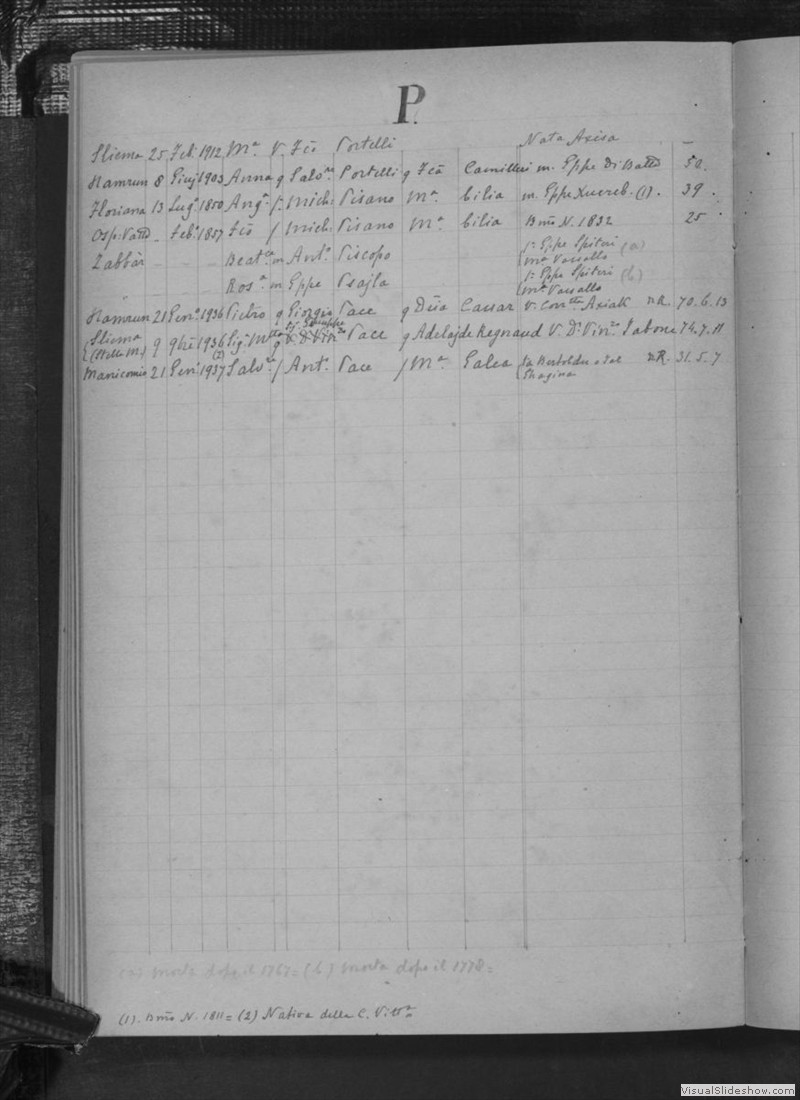 P.
Sliema 25 Feb. 1912 Mª V. Fcõ Portelli Nata Axisa —
Hamrun 8 Giuj 1903 Anna q Salv.re Portelli q Fcã Camilleri m. Gppe DiBatto 50.
Floriana 13 Lug.º 1850 Ang.ª f. Mich: Pisano Mª Cilia m. Gppe Xuereb. (1). 39.
Osp: Vatta Feb.º 1857 Fcõ f Mich: Pisano Mª Cilia Bmõ N. 1832 25
Zabbàr Beat.ce m Ant.º Piscopo 1º Gppe Spiteri (a)
Mª Vassallo
Ros.ª m Gppe Psajla 1º Gppe Spiteri (b)
Mª Vassallo
Hamrun 21 Gen.º 1936 Pietro q Giorgio Pace q Dũa Caruar V. Con.tta Axiak nR. 70.6.13
Sliema 9 9bre 1936 Sig.ª q V. Dr. Vin.zo Pace q Adelajde Regnaud V. Dr. Vin.zo Tabone 74.7.11
(Stella M.) (2) Giuseppe
Manicomio 21 Gen.º 1937 Salv.re f Ant.º Pace f Mª Galea Sa Bertoldu e Tal nR. 31.5.7
Ghagina
(a) Morta dopo il 1767 = (b) Morta dopo il 1778 =
(1). Bmõ N. 1811 = (2) Nativa della C. Vitt.ª
VisualSlideshow.com